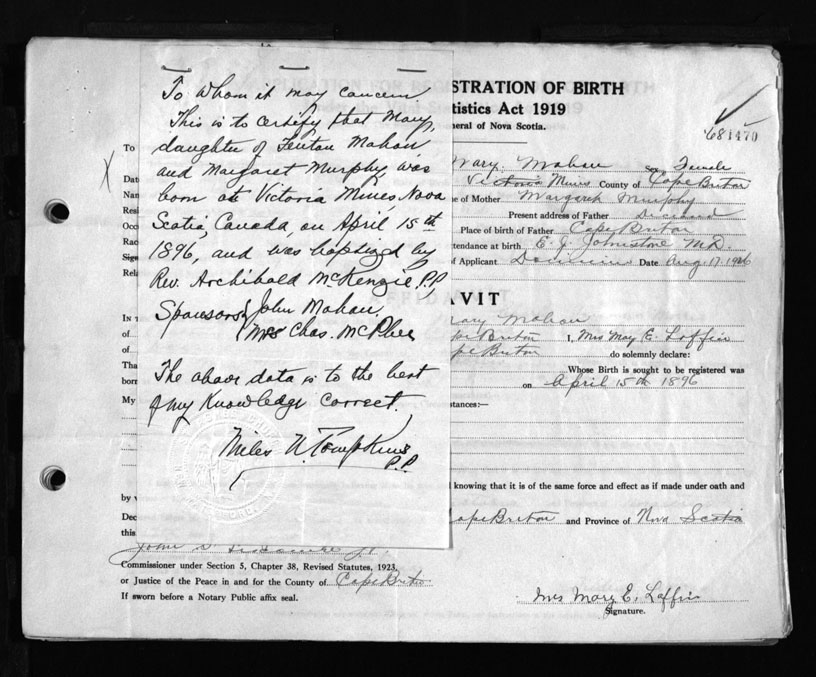 To whom it may concern
This is to certify that Mary,
daughter of Fenton Mahan
and Margaret Murphy, was
born at Victoria Mines, Nova
Scotia, Canada, on April 15th
1896, and was baptized by
Rev. Archibald McKenzie, P.P
Sponsors John Mahan,
Mrs Chas. McPhee
The above data is to the best
of my Knowledge correct.
Miles N. Tompkins
P.P.
STRATION OF BIRTH
tistics Act 1919
eneral of Nova Scotia.
681470
To
Mary Mahan Female
Dat
Victoria Mines County of Cape Breton
Nam
e of Mother Margaret Murphy
Resi
Present address of Father deceased
Occ
Place of birth of Father Cape Breton
Rac
ttendance at birth E. J. Johnstone M.D.
Sig
of Applicant Dominion Date Aug. 17. 1926
Rela
AVIT
In t
Mary Mahan
of
pe Breton I, Mrs Mary E. Laffin
of
pe Breton do solemnly declare:
Tha
Whose Birth is sought to be registered was
born
on April 15th 1896
My
stances:—
knowing that it is of the same force and effect as if made under oath and
by v
Dec
Cape Breton and Province of Nova Scotia
this
John
Commissioner under Section 5, Chapter 38, Revised Statutes, 1923,
or Justice of the Peace in and for the County of Cape Breton
If sworn before a Notary Public affix seal.
Mrs Mary E. Laffin
Signature.